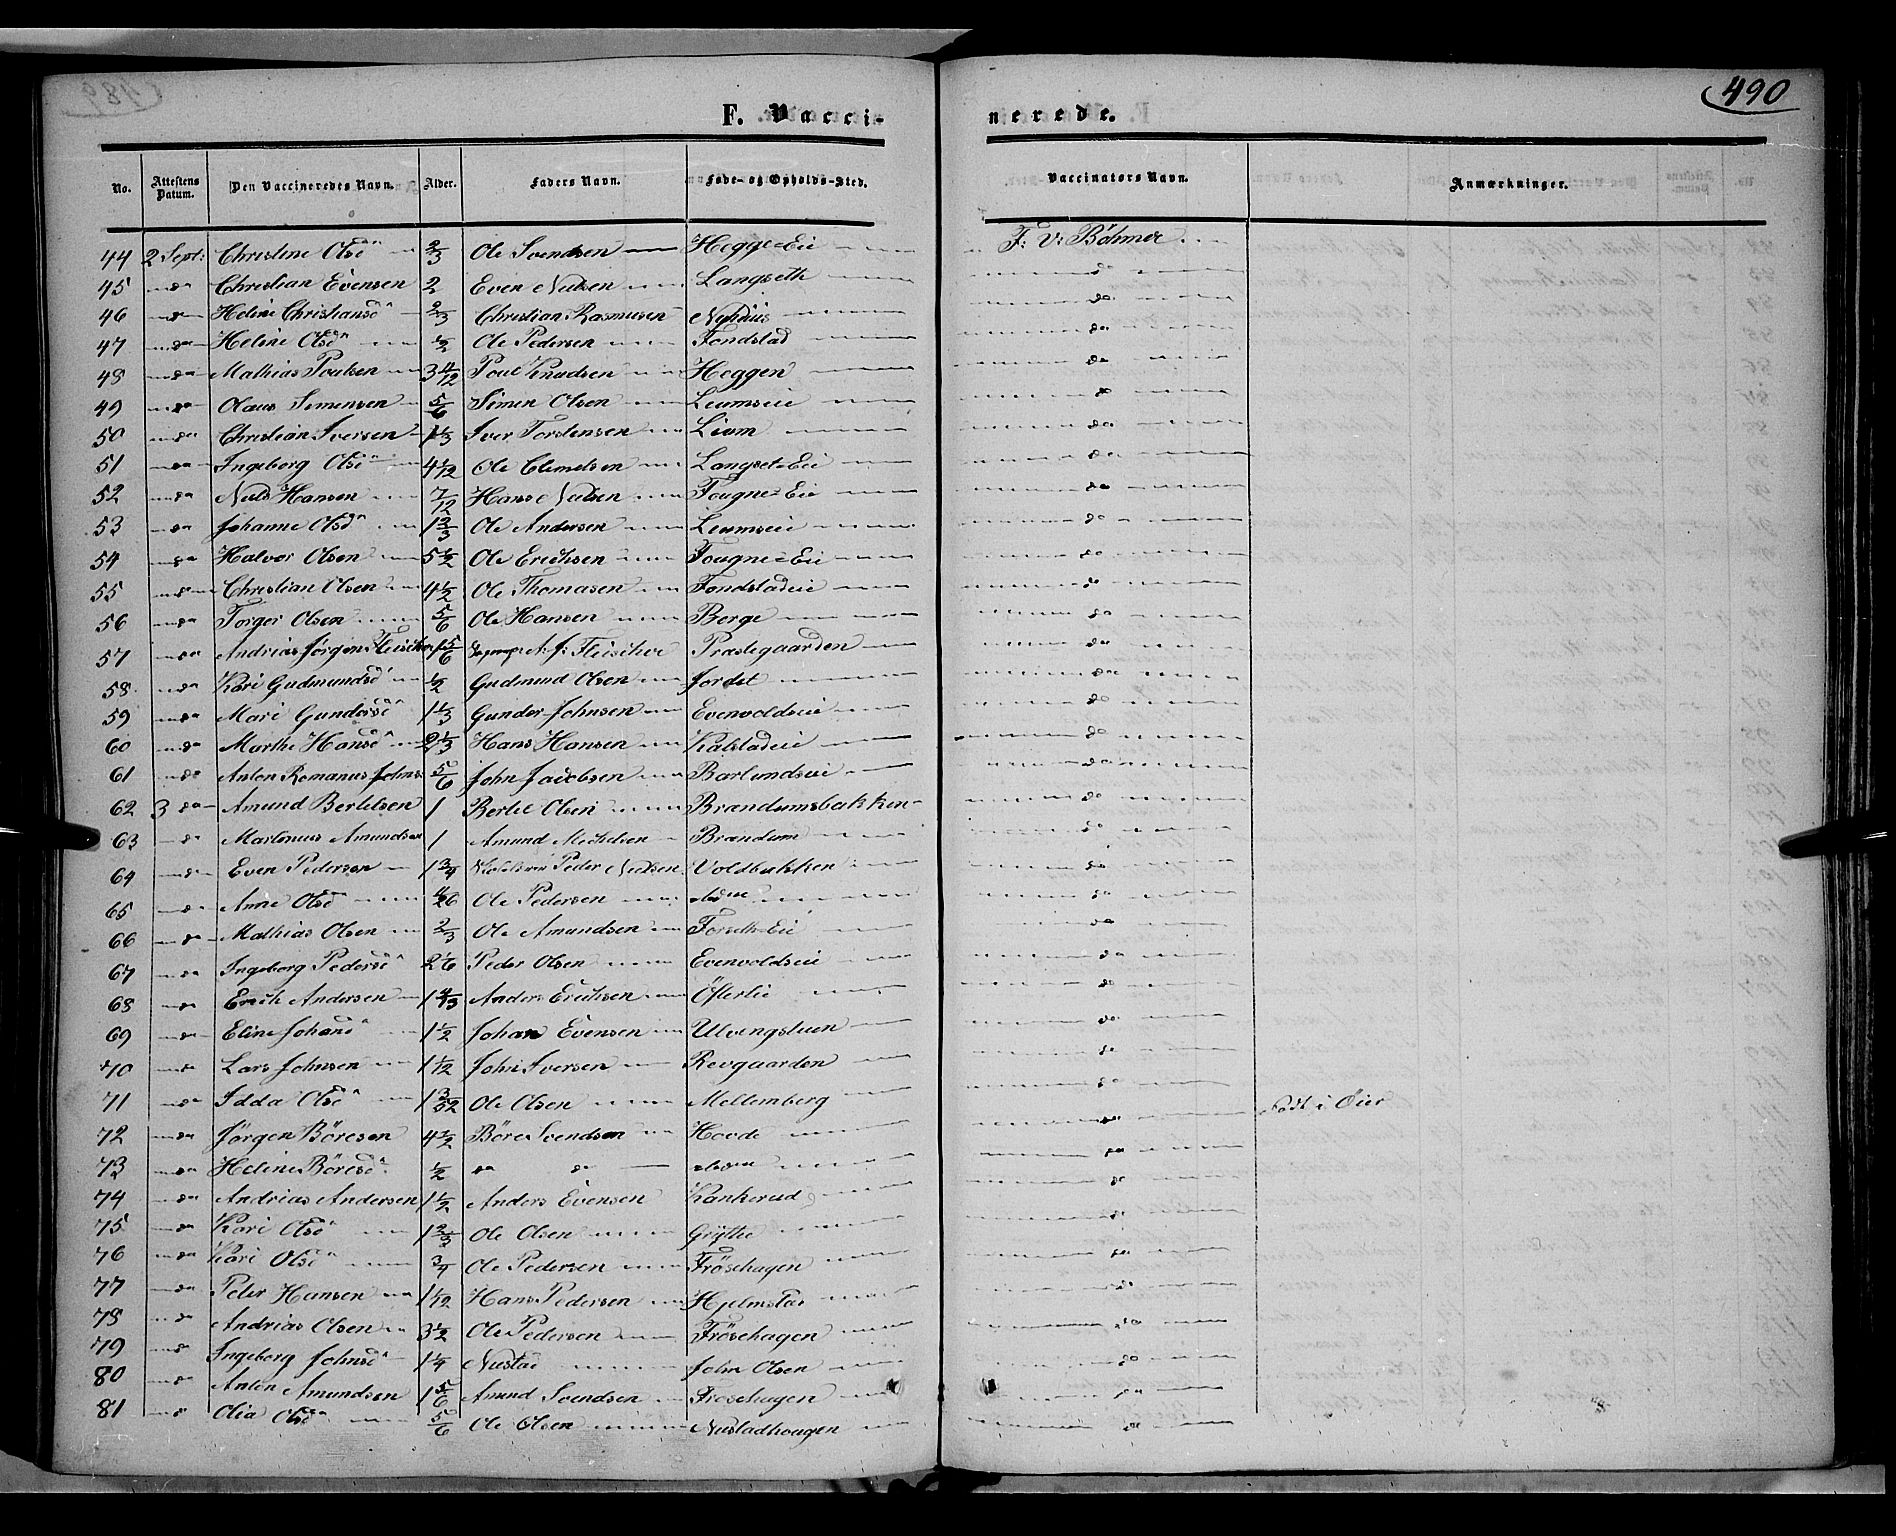 490
F. Vacci-nerede.
No. Attestens Datum. Den Vaccineredes Navn. Alder. Faders Navn. Føde- og Opholds-Sted. Vaccinators Navn. Anmærkninger.
44 2 Sept: Christine Olsdr 2/3 Ole Svendsen Hegge=Eie F: V: Böhmer
45 do Christian Evensen 2 Even Nielsen Langseth do
46 do Heline Christiansdr 2/3 Christian Rasmusen Nyhuus do
47 do Heline Olsdr 1/2 Ole Pedersen Fondstad do
48 do Mathias Poulsen 3 4/12 Poul Knudsen Heggen do
49 do Olaus Simensen 5/6 Simen Olsen Leumseie do
50 do Christian Iversen 1 1/3 Iver Torstensen Lium do
51 do Ingeborg Olsdr 4 1/12 Ole Clemetsen Langset=Eie do
52 do Niels Hansen 7/12 Hans Nielsen Fougne=Eie do
53 do Johanne Olsdr 1 2/3 Ole Andersen Leumseie do
54 do Halvor Olsen 5 1/2 Ole Erichsen Fougne=Eie do
55 do Christian Olsen 4 1/2 Ole Thomasen Fondstadeie do
56 do Torger Olsen 5/6 Ole Hansen Berge do
57 do Andrias Jørgen Fleischer 1 5/6 A: J: Fleischer Præstegaarden do
58 do Kari Gudmundsdr 1/2 Gudmund Olsen Jordet do
59 do Mari Gundersdr 1 1/3 Gunder Johnsen Evenvoldseie do
60 do Marthe Hansdr 2 1/3 Hans Hansen Kalstadeie do
61 do Anton Romanus Johns: 5/6 John Jacobsen Barlundseie do
62 3 do Amund Bertelsen 1 Bertel Olsen Brandumsbakken do
63 do Martinius Amundsen 1 Amund Mechelsen Brandum do
64 do Even Pedersen 1 3/4 Peder Nielsen Voldbakken do
65 do Anne Olsdr Ole Pedersen do
66 do Mathias Olsen 2/3 Ole Amundsen Forseth=Eie do
67 do Ingeborg Pedersdr 2 1/6 Peder Olsen Evenvoldseie do
68 do Erich Andersen 1 Anders Erichsen Österlie do
69 do Eline Johansdr 1 1/2 Johan Evensen Ulvengstuen do
70 do Lars Johnsen 1 1/12 John Iversen Revgaarden do
71 do Idda Olsdr 1 3/52 Ole Olsen Mellemberg do Födt i Öier
72 do Jørgen Böresen 4 1/2 Böre Svendsen Hovde do
73 do Heline Böresdr 1/2 do do do
74 do Andrias Andersen 1 1/2 Anders Evensen Kankerud do
75 do Kari Olsdr 1 2/3 Ole Olsen Grÿtte do
76 do Kari Olsdr 3/4 Ole Pedersen Fröschagen do
77 do Peter Hansen 1 1/12 Hans Pedersen Hjelmstad do
78 do Andrias Olsen 3 1/2 Ole Pedersen Fröschagen do
79 do Ingeborg Johnsdr 1 1/4 Nustad John Olsen do
80 do Anton Amundsen 1 5/6 Amund Svendsen Fröschagen do
81 do Olia Olsdr 5/6 Ole Olsen Nustadhougen do